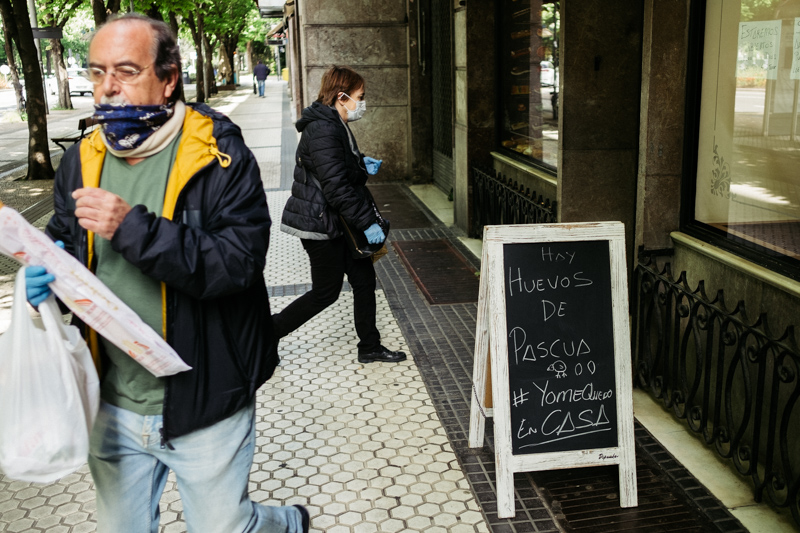 HAY
HUEVOS
DE
PASCUA
#YOMEQUEDO
EN CASA